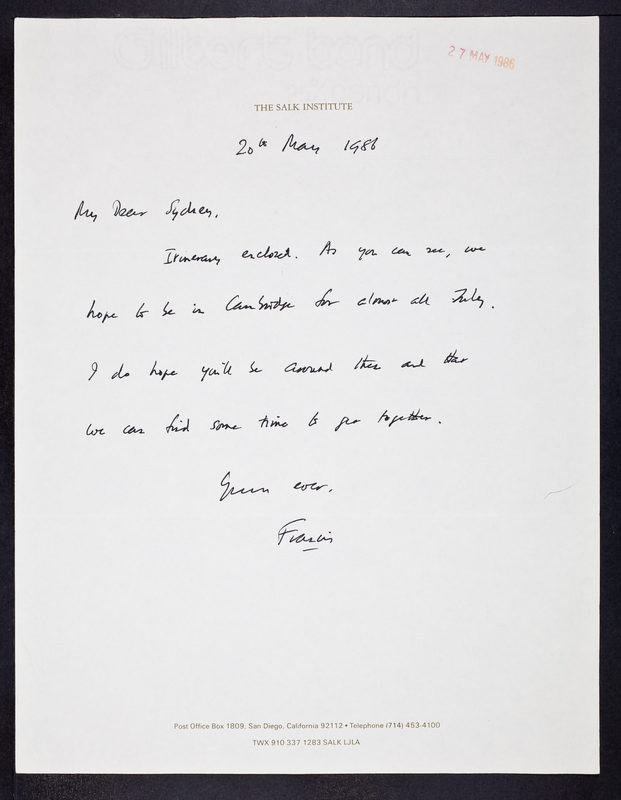 27 MAY 1986
THE SALK INSTITUTE
20th May 1986
My Dear Sydney,
Itinerary enclosed. As you can see, we
hope to be in Cambridge for almost all July.
I do hope you'll be around then and that
we can find some time to get together.
Yours ever,
Francis
Post Office Box 1809, San Diego, California 92112 • Telephone (714) 453-4100
TWX 910 337 1283 SALK LJLA